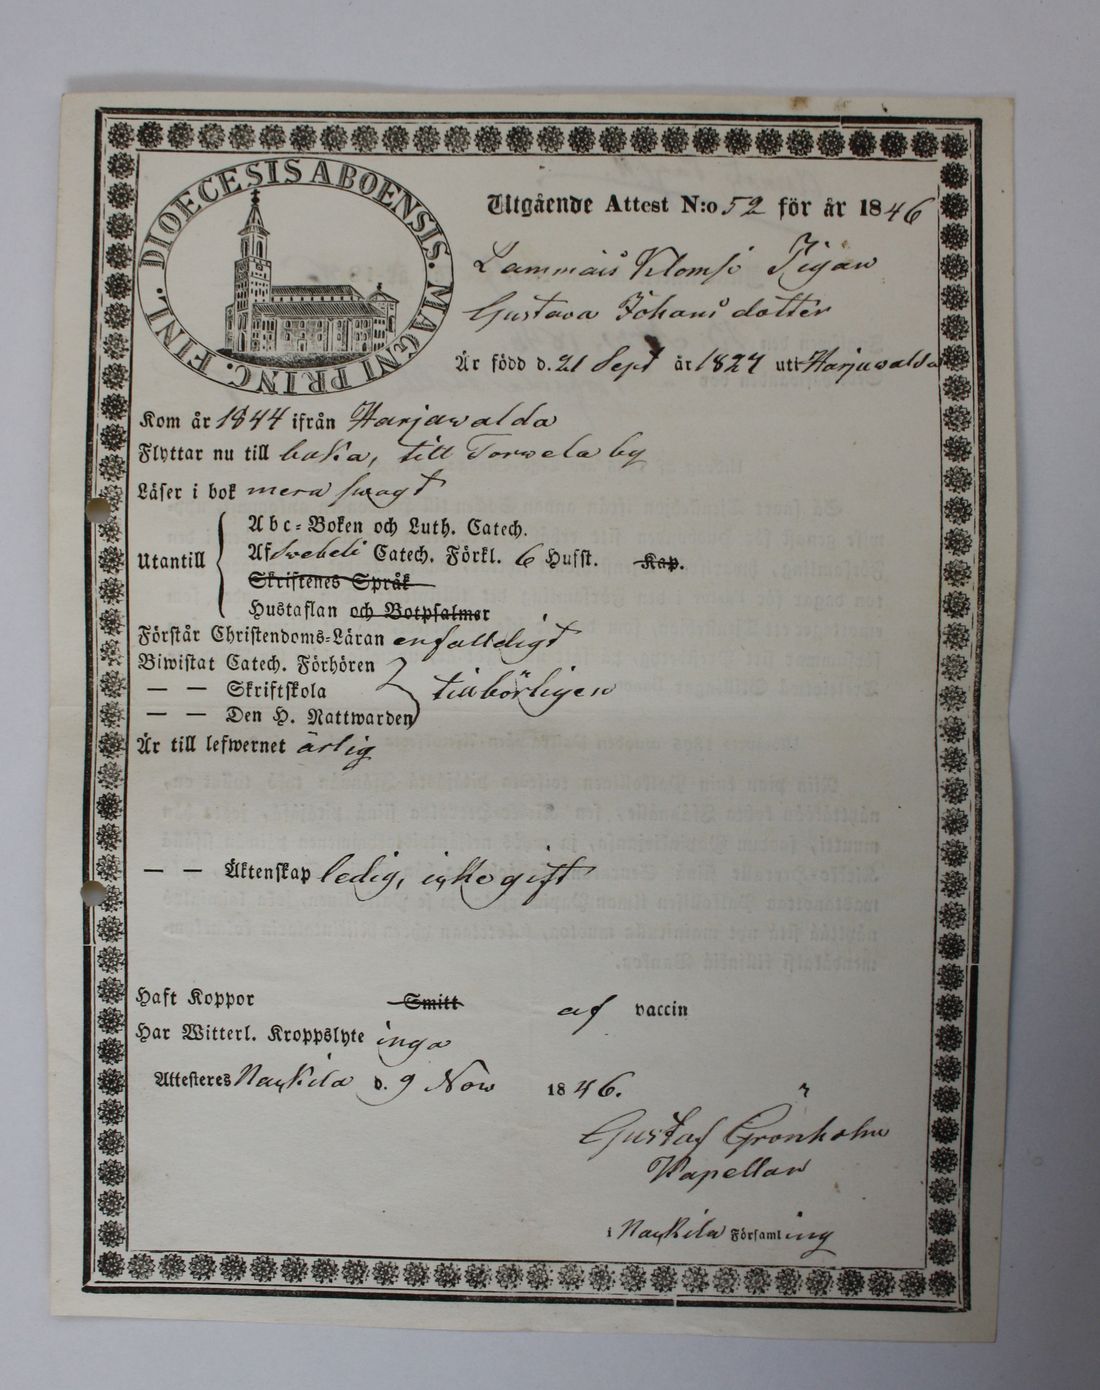 DIOECESIS ABOENSIS. MAGNI PRINC. FINL.
Utgående Attest N:o 52 för år 1846
Lammais Klomsi Pigan
Gustava Johans dotter
Är född d. 21 Sept år 1827 uti Harjawalda
Kom år 1844 ifrån Harjawalda
Flyttar nu till baka, till Torwela by
Läser i bok mera swagt
Utantill
Abc-Boken och Luth. Catech.
Af Swebeli Catech. Förkl. 6 Hufst. Kap.
Skriftenes Språk
Hustaflan och Botpsalmer
Förstår Christendoms-Läran enfaldigt
Biwistat Catech. Förhören
— — Skriftskola tillbörligen
— — Den H. Nattwarden
Är till lefwernet ärlig
— — Äktenskap ledig, icke gift
Haft Koppor Smitt af vaccin
Har Witterl. Kroppslyte inga
Attesteres Nackila d. 9 Nov 1846.
Gustaf Grönholm
Kapellan
i Nackila Församling